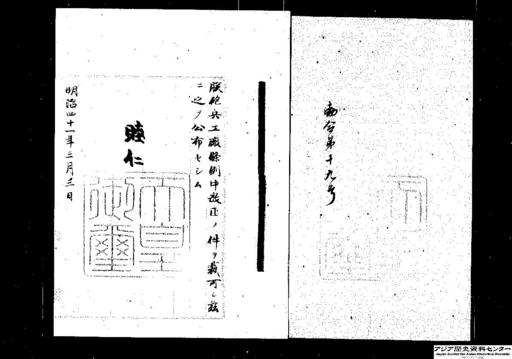 勅令第十九号
朕砲兵工廠條例中改正ノ件ヲ裁可シ茲
ニ之ヲ公布セシム
睦仁
天皇
御璽
明治四十一年三月三日
アジア歴史資料センター
Japan Center for Asian Historical Records